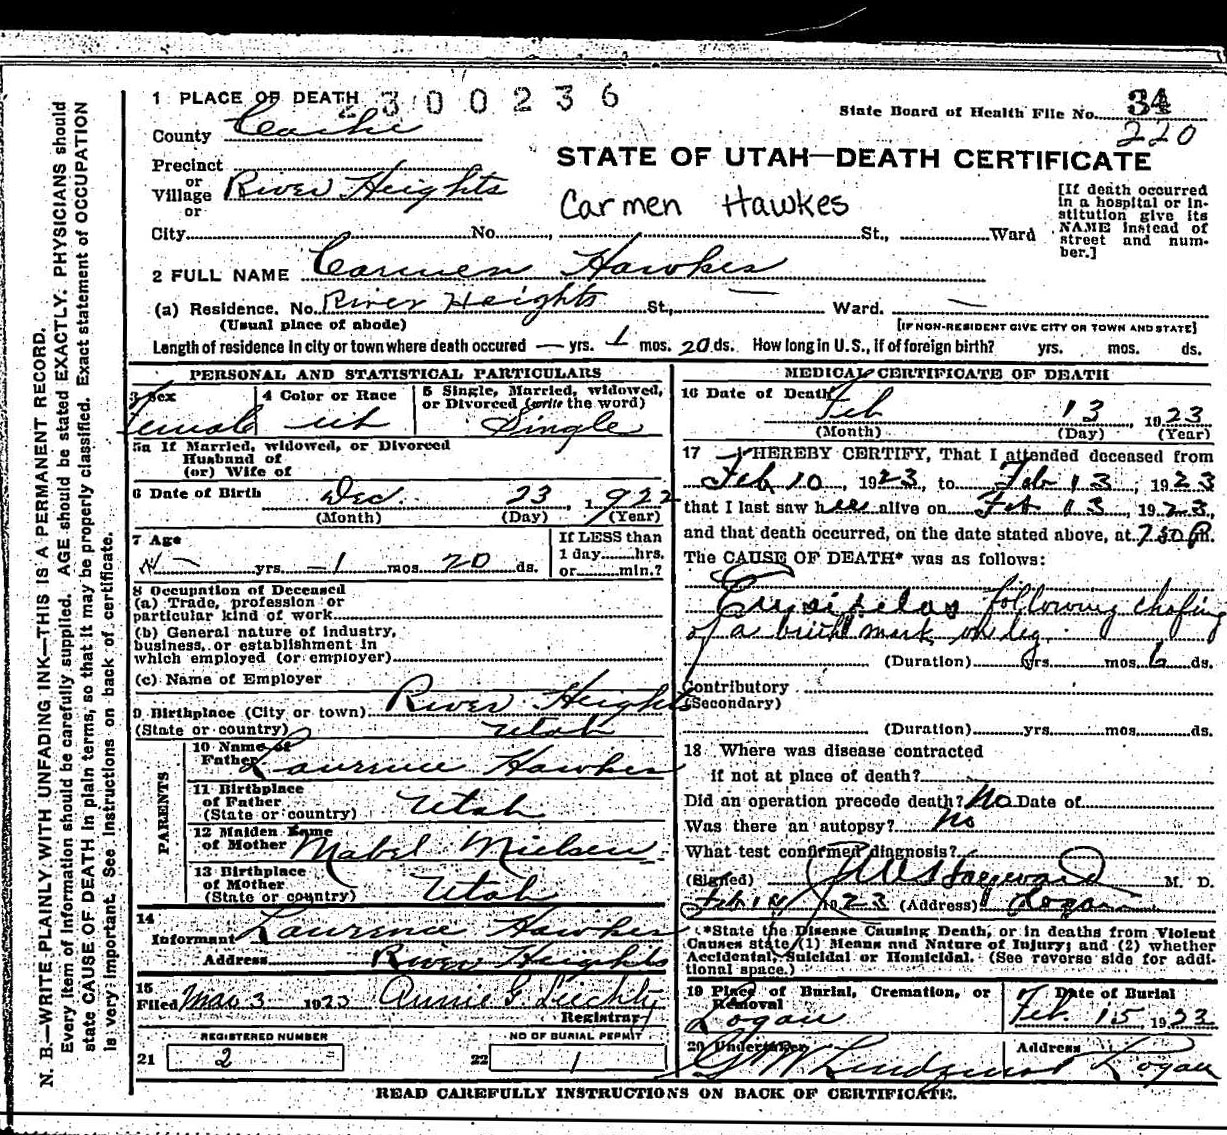 1 PLACE OF DEATH 2300236
State Board of Health File No. 34
County Cache
220
STATE OF UTAH—DEATH CERTIFICATE
Precinct
or
Village River Heights
or
Carmen Hawkes
[If death occurred
in a hospital or in-
stitution give its
NAME instead of
street and num-
ber.]
City No. St., Ward
2 FULL NAME Carmen Hawkes
(a) Residence. No. River Heights St., — Ward. —
(Usual place of abode)
[IF NON-RESIDENT GIVE CITY OR TOWN AND STATE]
Length of residence in city or town where death occured — yrs. 1 mos. 20 ds. How long in U.S., if of foreign birth? yrs. mos. ds.
PERSONAL AND STATISTICAL PARTICULARS
3 Sex
Female
4 Color or Race
wh
5 Single, Married, widowed,
or Divorced (write the word)
Single
5a If Married, widowed, or Divorced
Husband of
(or) Wife of
6 Date of Birth Dec 23, 1922
(Month) (Day) (Year)
7 Age
— yrs. 1 mos. 20 ds.
If LESS than
1 day hrs.
or min.?
8 Occupation of Deceased
(a) Trade, profession or
particular kind of work
(b) General nature of industry,
business, or establishment in
which employed (or employer)
(c) Name of Employer
9 Birthplace (City or town) River Heights
(State or country) Utah
PARENTS
10 Name of
Father Laurence Hawkes
11 Birthplace
of Father
(State or country) Utah
12 Maiden Name
of Mother Mabel Nielsen
13 Birthplace
of Mother
(State or country) Utah
14
Informant Laurence Hawkes
Address River Heights
15
Filed Mar 3 1923 Annie G. Leichty
Registrar
REGISTERED NUMBER
21 2
NO OF BURIAL PERMIT
22 1
MEDICAL CERTIFICATE OF DEATH
16 Date of Death
Feb 13, 1923
(Month) (Day) (Year)
17 I HEREBY CERTIFY, That I attended deceased from
Feb 10, 1923, to Feb 13, 1923
that I last saw her alive on Feb 13, 1923,
and that death occurred, on the date stated above, at 7:50 P.m.
The CAUSE OF DEATH* was as follows:
Erysipelas following chafing
of a birth mark on leg
(Duration) yrs. mos. 6 ds.
Contributory
(Secondary)
(Duration) yrs. mos. ds.
18 Where was disease contracted
if not at place of death?
Did an operation precede death? No Date of
Was there an autopsy? No
What test confirmed diagnosis?
(Signed) Hayward M. D.
Feb 14 1923 (Address) Logan
*State the Disease Causing Death, or in deaths from Violent
Causes state (1) Means and Nature of Injury; and (2) whether
Accidental, Suicidal or Homicidal. (See reverse side for addi-
tional space.)
19 Place of Burial, Cremation, or
Removal
Logan
Date of Burial
Feb. 15 1923
20 Undertaker
G W Lindquist
Address
Logan
READ CAREFULLY INSTRUCTIONS ON BACK OF CERTIFICATE.
N. B.—WRITE PLAINLY WITH UNFADING INK—THIS IS A PERMANENT RECORD.
Every item of information should be carefully supplied. AGE should be stated EXACTLY. PHYSICIANS should
state CAUSE OF DEATH in plain terms, so that it may be properly classified. Exact statement of OCCUPATION
is very important. See Instructions on back of certificate.